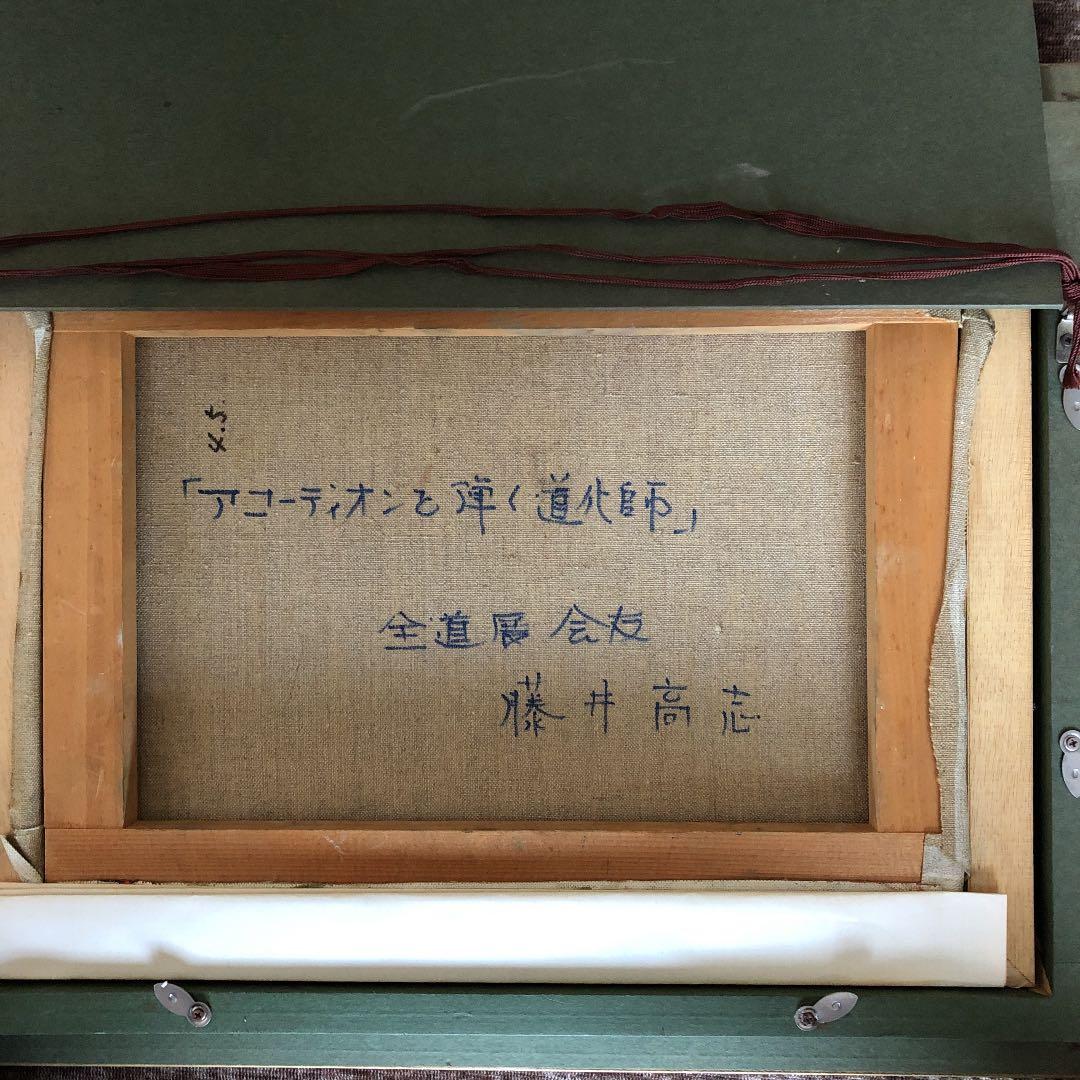 4.5
「アコーディオンを弾く道化師」
全道展 会友
藤井高志